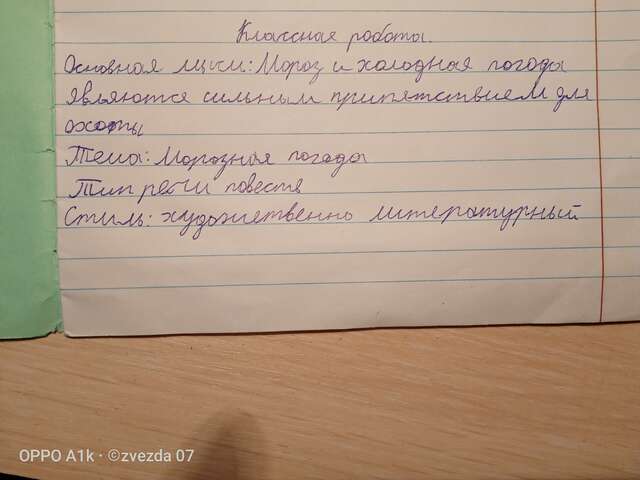 Классная работы.
Основная мысли: Мороз и холодная погоды
являются сильным припятствием для
охоты
Тема: Морозная погода
Тип речи повеств
Стиль: художественно литературный
OPPO A1k · ©zvezda 07